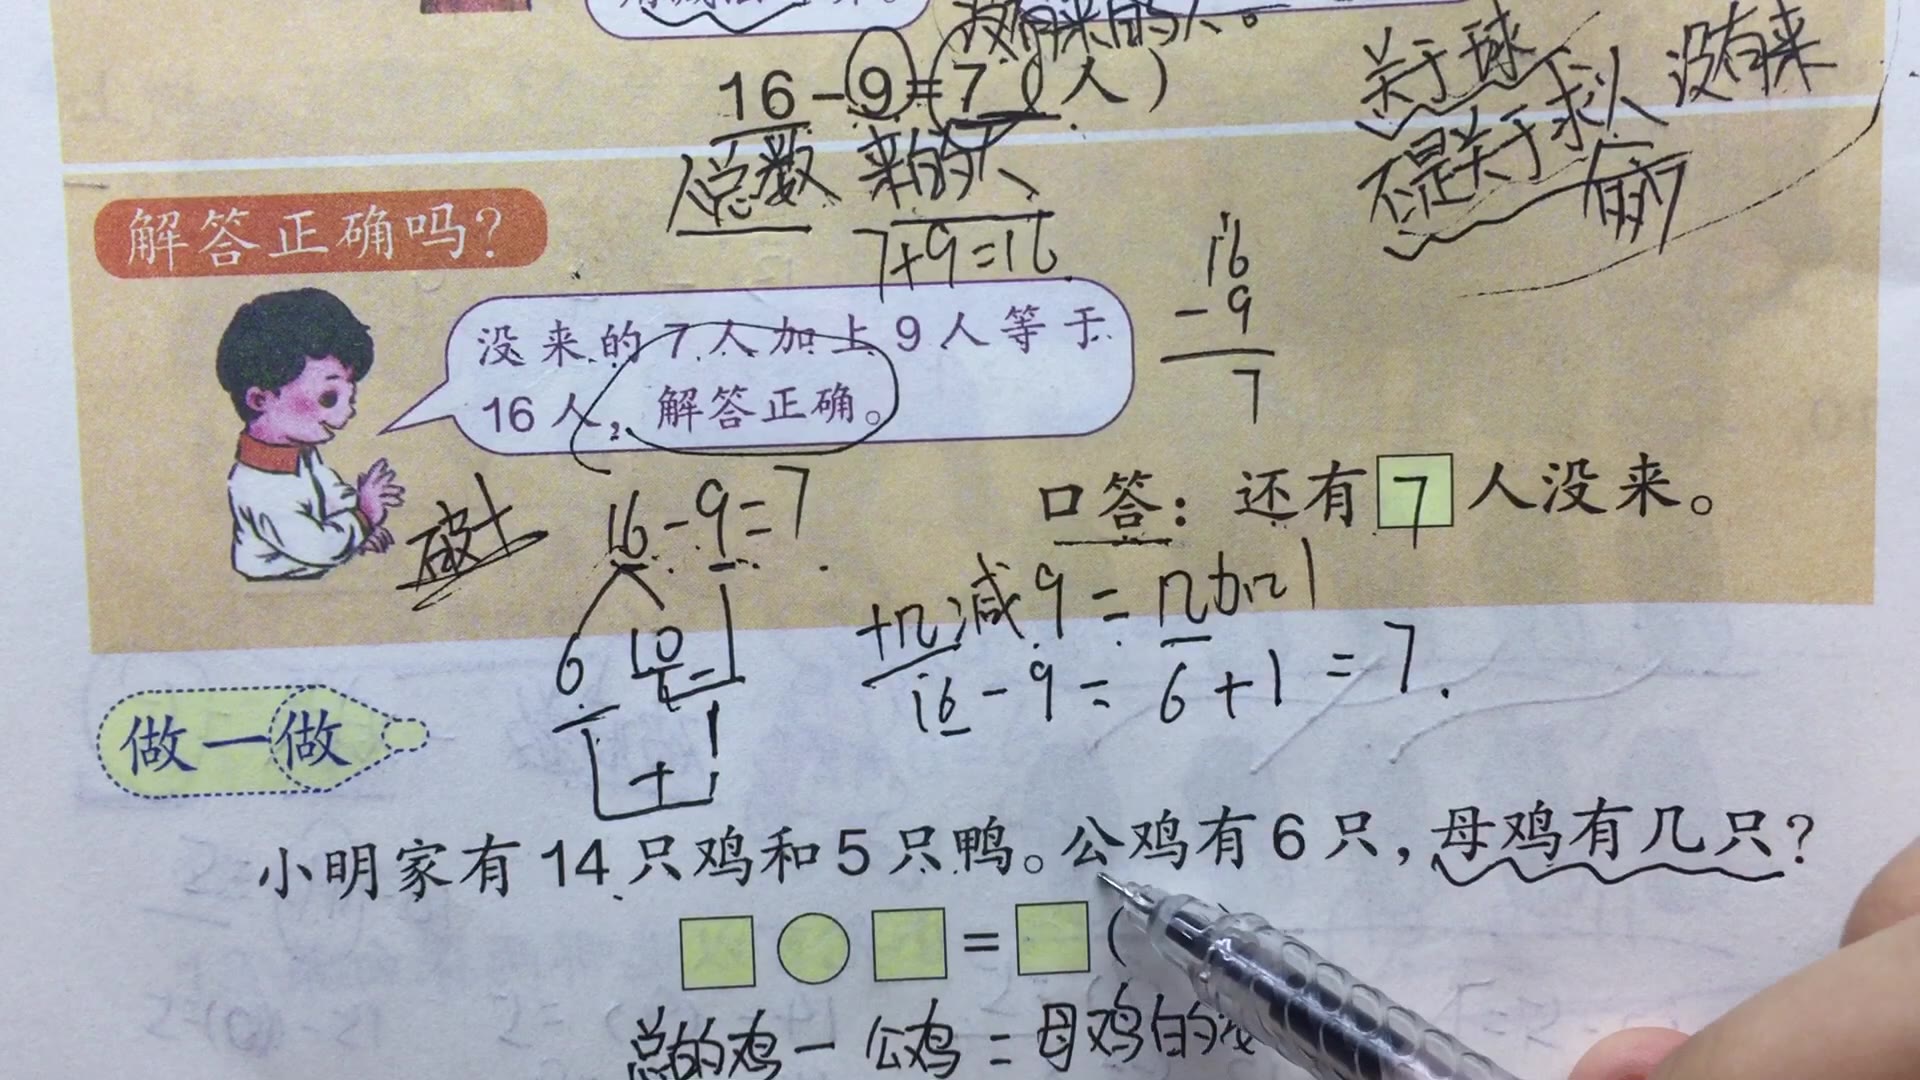 没有来的人。
16-9=7(人)
关于球 没有来
不是关于求人 有前
人总数 来的人
7+9=16
解答正确吗?
16
-9
7
没来的7人加上9人等于
16人,解答正确。
口答:还有7人没来。
破十
16-9=7
6 10
十几减9=几加1
16-9=6+1=7.
+
做一做
小明家有14只鸡和5只鸭。公鸡有6只,母鸡有几只?
= (
总的鸡-公鸡=母鸡的